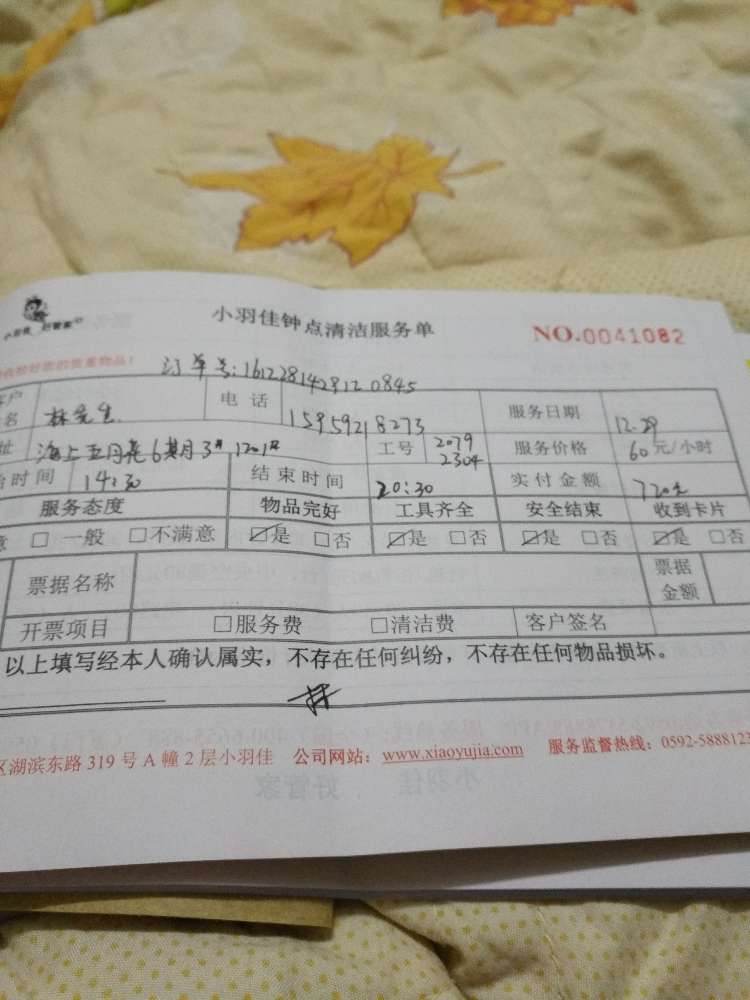 小羽佳 好管家
小羽佳钟点清洁服务单 NO.0041082
好您的贵重物品!
订单号:161228142912 0845
客户
名 林先生 电话 15959218273 服务日期 12.29
址 海上五月花6期3# 1201# 工号 2079 2304 服务价格 60元/小时
时间 14:30 结束时间 20:30 实付金额 720元
服务态度 物品完好 工具齐全 安全结束 收到卡片
意 □ 一般 □不满意 ☑是 □否 ☑是 □否 ☑是 □否 ☑是 □否
票据名称 票据金额
开票项目 □服务费 □清洁费 客户签名
以上填写经本人确认属实，不存在任何纠纷，不存在任何物品损坏。
林
区湖滨东路 319 号 A 幢 2 层小羽佳 公司网站：www.xiaoyujia.com 服务监督热线：0592-5888123